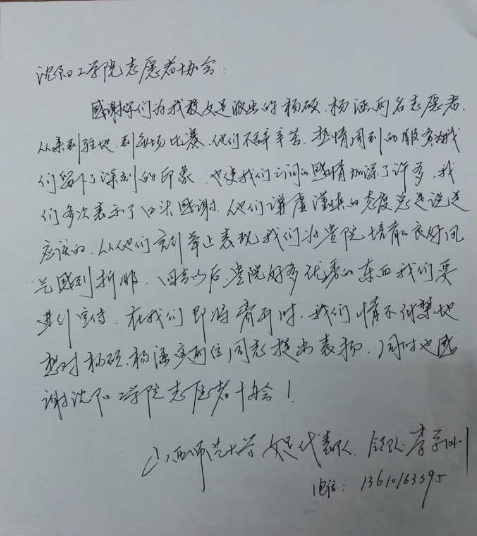 沈阳工学院志愿者协会：
感谢你们为我校女足派出的杨硕、杨涵两名志愿者，
从来到驻地到每场比赛，他们不辞辛苦，热情周到的服务给我
们留下了深刻的印象，也使我们之间的感情加深了许多，我
们多次表示了口头感谢，他们谦虚谨慎的态度总是说这是
应该的，从他们言行举止表现，我们为贵院培育的良好风
气感到折服，回去以后贵院好多优秀的东西我们要
进行宣传，在我们即将离开时，我们情不自禁地
想对杨硕、杨涵两位同志提出表扬，同时也感
谢沈阳工学院志愿者协会！
山西师范大学 女足代表队 领队：李
电话：13610163395